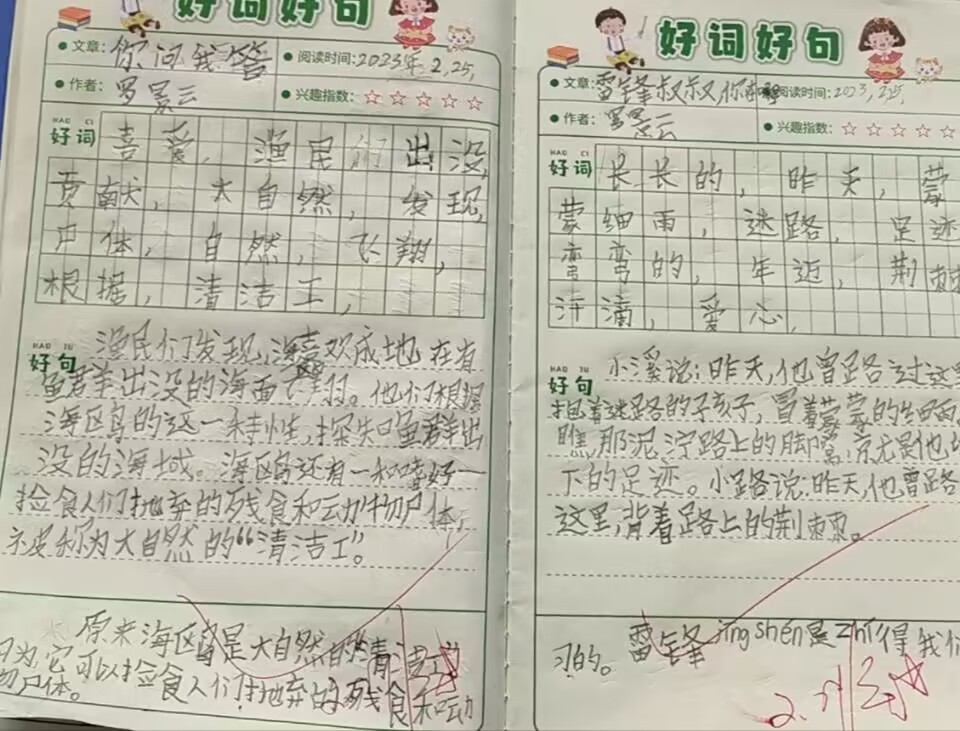 好词好句
文章: 你问我答
阅读时间: 2023年2,25,
作者: 罗
云
兴趣指数: ☆☆☆☆☆
HAO CI
好词
喜爱, 渔民们出没,
贡献, 大自然, 发现,
尸体, 自然, 飞翔,
根据, 清洁工,
HAO JU
好句
渔民们发现,海
喜欢成地在有
鱼群出没的海面飞翔。他们根据
海区鸟的这一特性,探知鱼群出
没的海域。海区鸟还有一种嗜好一
捡食人们抛弃的残食和动物尸体,
被称为大自然的“清洁工”。
原来海区鸟是大自然的清洁工
因为它可以捡食人们抛弃的残食和动
物尸体。
好词好句
文章: 雷锋叔叔你在
阅读时间: 2023,2,25,
作者: 罗
云
兴趣指数: ☆☆☆☆☆
HAO CI
好词
长长的, 昨天, 蒙
蒙细雨, 迷路, 足迹
弯弯的, 年迈, 荆棘
汗滴, 爱心,
HAO JU
好句
小溪说:昨天,他曾路过这里
抱着迷路的孩子,冒着蒙蒙的细雨。
瞧,那泥泞路上的脚窝,就是他
下的足迹。小路说:昨天,他曾路
这里,背着
踏路上的荆棘。
雷锋jīng shén是zhí得我们
习的。
2.